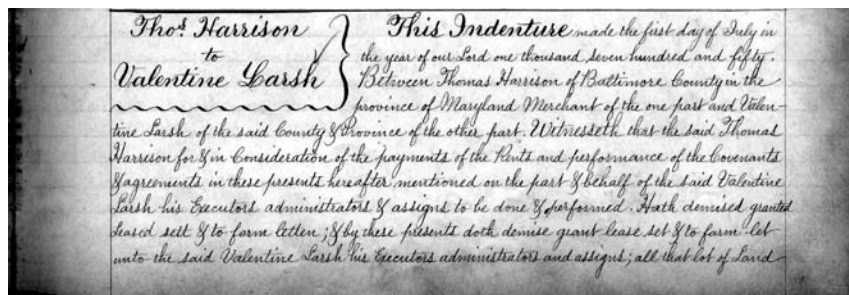 Thos. Harrison
to
Valentine Larsh
This Indenture made the first day of July in
the year of our Lord one thousand seven hundred and fifty.
Between Thomas Harrison of Baltimore County in the
province of Maryland Merchant of the one part and Valen-
tine Larsh of the said County & Province of the other part. Witnesseth that the said Thomas
Harrison for & in Consideration of the payments of the Rents and performance of the Covenants
& agreements in these presents hereafter mentioned on the part & behalf of the said Valentine
Larsh his Executors administrators & assigns to be done & performed. Hath demised granted
leased sett & to farm letten; & by these presents doth demise grant lease set & to farm-let
unto the said Valentine Larsh his Executors administrators and assigns; all that lot of Land